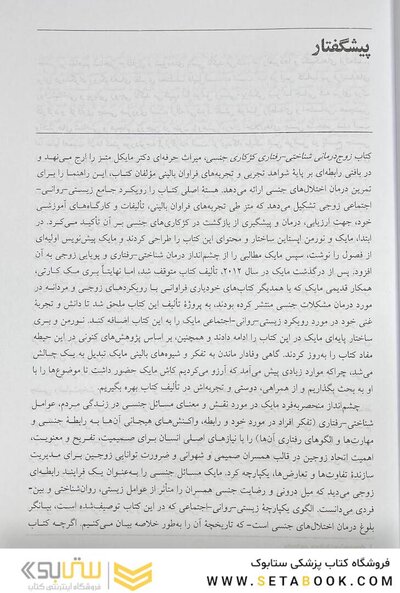 پیشگفتار
کتاب زوج‌درمانی شناختی-رفتاری کژکاری جنسی، میراث حرفه‌ای دکتر مایکل متز را ارج می‌نهد و
در بافتی رابطه‌ای بر پایهٔ شواهد تجربی و تجربه‌های فراوان بالینی مؤلفان کتاب، این راهنما را برای
تمرین درمان اختلال‌های جنسی ارائه می‌دهد. هستهٔ اصلی کتاب را رویکرد جامع زیستی-روانی-
اجتماعی زوجی تشکیل می‌دهد که متز طی تجربه‌های فراوان بالینی، تألیفات و کارگاه‌های آموزشی
خود، جهت ارزیابی، درمان و پیشگیری از بازگشت در کژکاری‌های جنسی بر آن تأکید می‌کرد. در
ابتدا، مایک و نورمن اپستاین ساختار و محتوای این کتاب را طراحی کردند و مایک پیش‌نویس اولیه‌ای
از فصول را نوشت، سپس مایک مطالبی را از چشم‌انداز درمان شناختی-رفتاری و پویایی زوجی به آن
افزود. پس از درگذشت مایک در سال ۲۰۱۲، تألیف کتاب متوقف شد، اما نهایتاً بری مک کارتی،
همکار قدیمی مایک که با همدیگر کتاب‌های خودیاری فراوانی با رویکردهای زوجی و مردانه در
مورد درمان مشکلات جنسی منتشر کرده بودند، به پروژهٔ تألیف این کتاب ملحق شد تا دانش و تجربهٔ
غنی خود در مورد رویکرد زیستی-روانی-اجتماعی مایک را به این کتاب اضافه کند. نورمن و بری
ساختار پایه‌ای مایک در این کتاب را ادامه دادند و همچنین، بر اساس پژوهش‌های کنونی در این حیطه
مفاد کتاب را به‌روز کردند. گاهی وفادار ماندن به تفکر و شیوه‌های بالینی مایک تبدیل به یک چالش
می‌شد، چراکه موارد زیادی پیش می‌آمد که آرزو می‌کردیم کاش مایک حضور داشت تا موضوع‌ها را با
او به بحث بگذاریم و از همراهی، دوستی و تجربه‌اش در تألیف کتاب بهره بگیریم.
چشم‌انداز منحصربه‌فرد مایک در مورد نقش و معنای مسائل جنسی در زندگی مردم، عوامل
شناختی-رفتاری (تفکر افراد در مورد خود و رابطه، واکنش‌های هیجانی آن‌ها به رابطهٔ جنسی و
مهارت‌ها و الگوهای رفتاری آن‌ها) را با نیازهای اصلی انسان برای صمیمیت، تفریح و معنویت،
اهمیت اتحاد زوجین در قالب همسران صمیمی و شهوانی و ضرورت توانایی زوجین برای مدیریت
سازندهٔ تفاوت‌ها و تعارض‌ها، یکپارچه کرد. مایک مسائل جنسی را به‌عنوان یک فرایند رابطه‌ای
زوجی می‌دید که میل درونی و رضایت جنسی همسران را متأثر از عوامل زیستی، روان‌شناختی و بین-
فردی می‌دانست. الگوی یکپارچهٔ زیستی-روانی-اجتماعی که در این کتاب توصیف‌شده است، بیانگر
بلوغ درمان اختلال‌های جنسی است- که تاریخچهٔ آن را به‌طور خلاصه بیان می‌کنیم. اگرچه کتاب
ستابوک
فروشگاه اینترنتی کتاب
فروشگاه کتاب پزشکی ستابوک
WWW.SETABOOK.COM